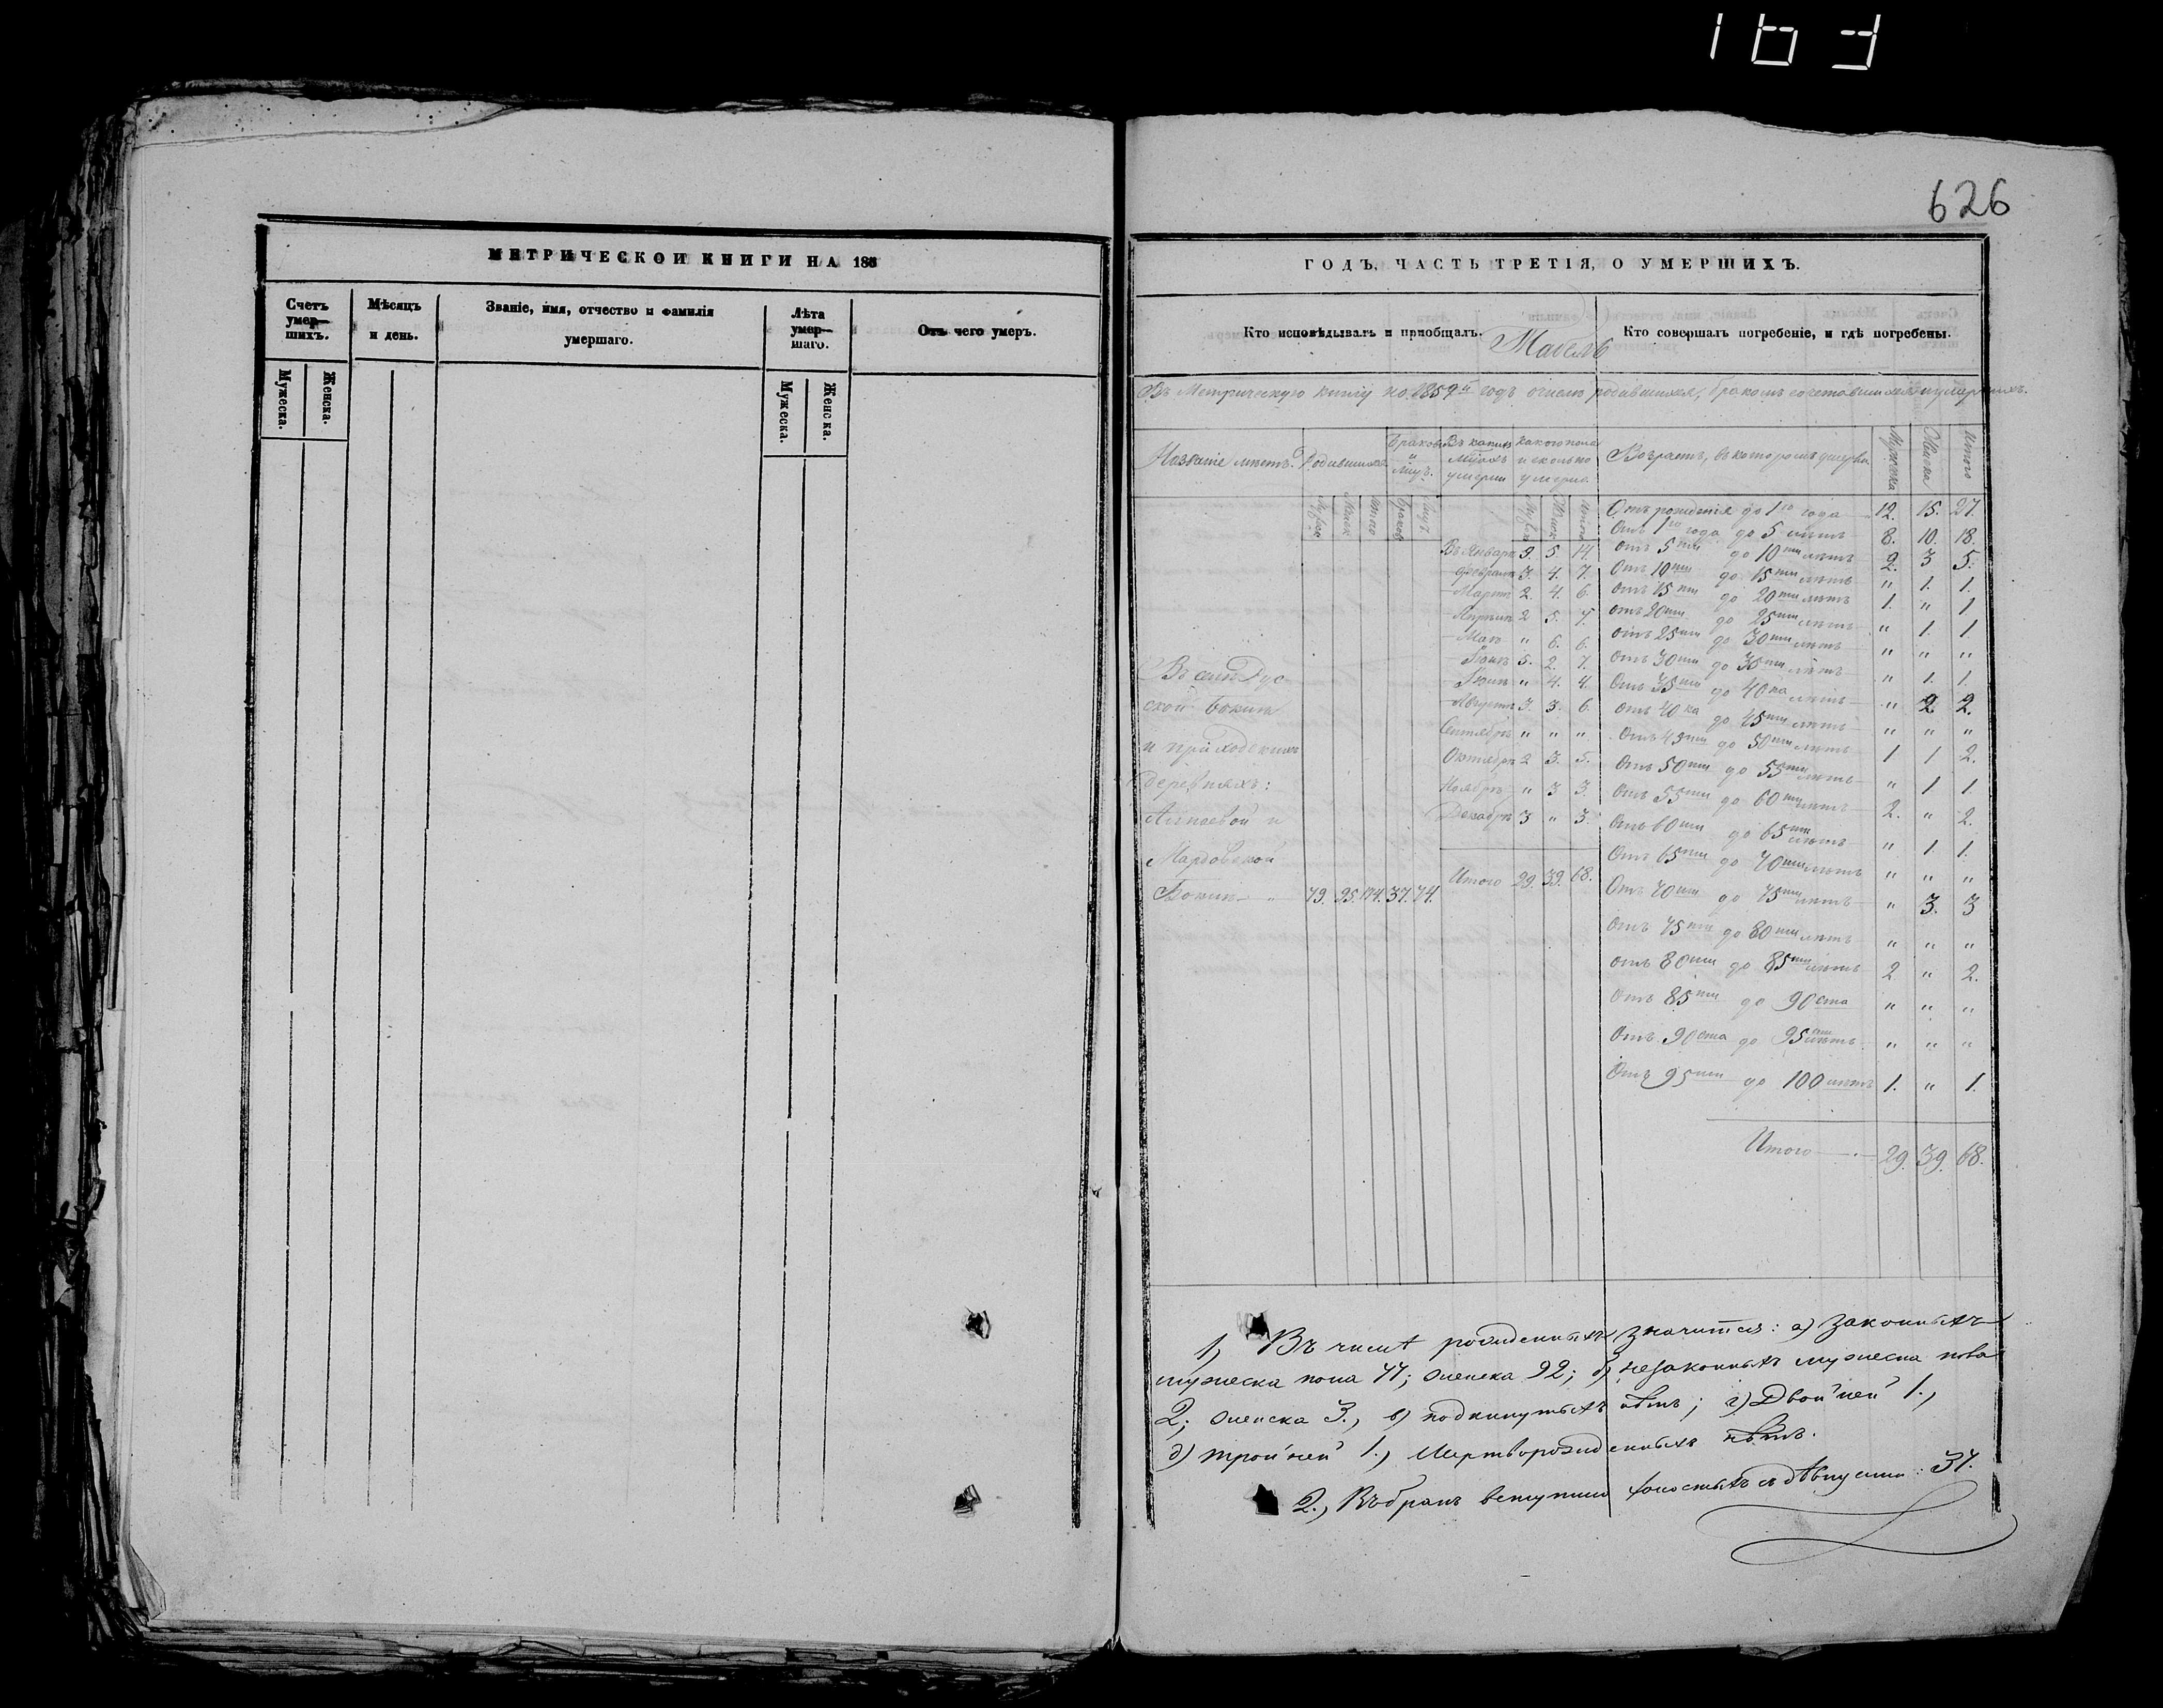 626
МЕТРИЧЕСКОЙ КНИГИ НА 185
Счетъ умер— шихъ.
Мужеска.
Женска.
Мѣсяцъ и день.
Званіе, имя, отчество и фамилія умершаго.
Лѣта умер— шаго.
Мужеска.
Женска.
Отъ чего умеръ.
ГОДЪ, ЧАСТЬ ТРЕТІЯ, О УМЕРШИХЪ.
Кто исповѣдывалъ и пріобщалъ.
Кто совершалъ погребеніе, и гдѣ погребены.
Табель
Въ Метрическую книгу на 1859й годъ о числѣ родившихся, бракомъ сочетавшихся и умершихъ.
Названіе мѣстъ.
Родившихся
Браковъ и лицъ.
Въ какихъ мѣсяцахъ умерли
какого пола и сколько умерло.
Возрастъ, въ которомъ умерли
Мужска
Женска
Итого
Въ Январѣ 9. 5. 14.
Февралѣ 3. 4. 7.
Мартѣ 2. 4. 6.
Апрѣлѣ 2 5. 7.
Маѣ " 6. 6.
Іюнѣ 5. 2. 7.
Іюлѣ " 4. 4.
Августѣ 3. 3. 6.
Сентябрѣ " " "
Октябрѣ 2 3. 5.
Ноябрѣ " 3 3.
Декабрѣ 3 " 3.
Итого 29. 39. 68.
Въ селѣ
и приходскихъ
деревняхъ:
79. 95. 174. 37. 74.
Отъ рожденія до 1го года 12. 15. 27.
Отъ 1го года до 5 лѣтъ 8. 10. 18.
Отъ 5ти до 10ти лѣтъ 2. 3 5.
Отъ 10ти до 15ти лѣтъ " 1. 1.
Отъ 15ти до 20ти лѣтъ 1. " 1
Отъ 20ти до 25ти лѣтъ " 1. 1
Отъ 25ти до 30ти лѣтъ " " "
Отъ 30ти до 35ти лѣтъ " 1. 1.
Отъ 35ти до 40ка лѣтъ " 2 2.
Отъ 40ка до 45ти лѣтъ " " "
Отъ 45ти до 50ти лѣтъ 1 1 2.
Отъ 50ти до 55ти лѣтъ " 1 1
Отъ 55ти до 60ти лѣтъ 2. " 2.
Отъ 60ти до 65ти лѣтъ " 1. 1.
Отъ 65ти до 70ти лѣтъ " " "
Отъ 70ти до 75ти лѣтъ " 3. 3
Отъ 75ти до 80ти лѣтъ " " "
Отъ 80ти до 85ти лѣтъ 2 " 2.
Отъ 85ти до 90ста " " "
Отъ 90ста до 95ти лѣтъ " " "
Отъ 95ти до 100 лѣтъ 1. " 1.
Итого 29. 39. 68.
1, Въ числѣ рожденныхъ значится: а) законныхъ
мужеска пола 77; женска 92; б) незаконныхъ мужеска пола
2; женска 3., в) подкинутыхъ нѣтъ; г) Двойней 1.,
д) тройней 1., Мертворожденныхъ нѣтъ.
2., Въ бракъ вступило холостыхъ съ дѣвицами: 37.